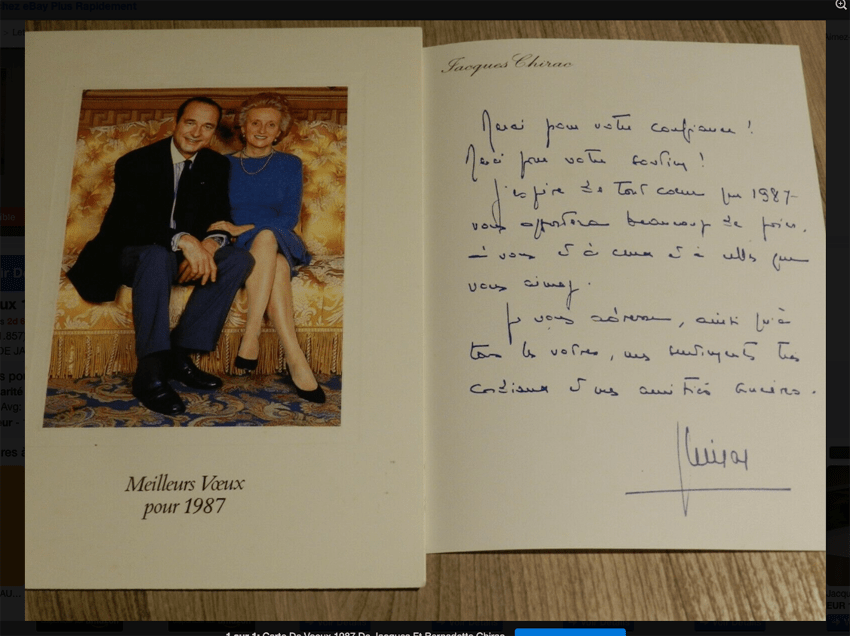 chez eBay Plus Rapidement
Meilleurs Vœux
pour 1987
Jacques Chirac
Merci pour votre confiance !
Merci pour votre soutien !
J'espère de tout cœur que 1987
vous apportera beaucoup de joies,
à vous et à ceux et à celles que
vous aimez.
Je vous adresse, ainsi qu'à
tous les vôtres, mes sentiments très
cordiaux et mes amitiés sincères.
JChirac
1 sur 1: Carte De Voeux 1987 De Jacques Et Bernadette Chirac